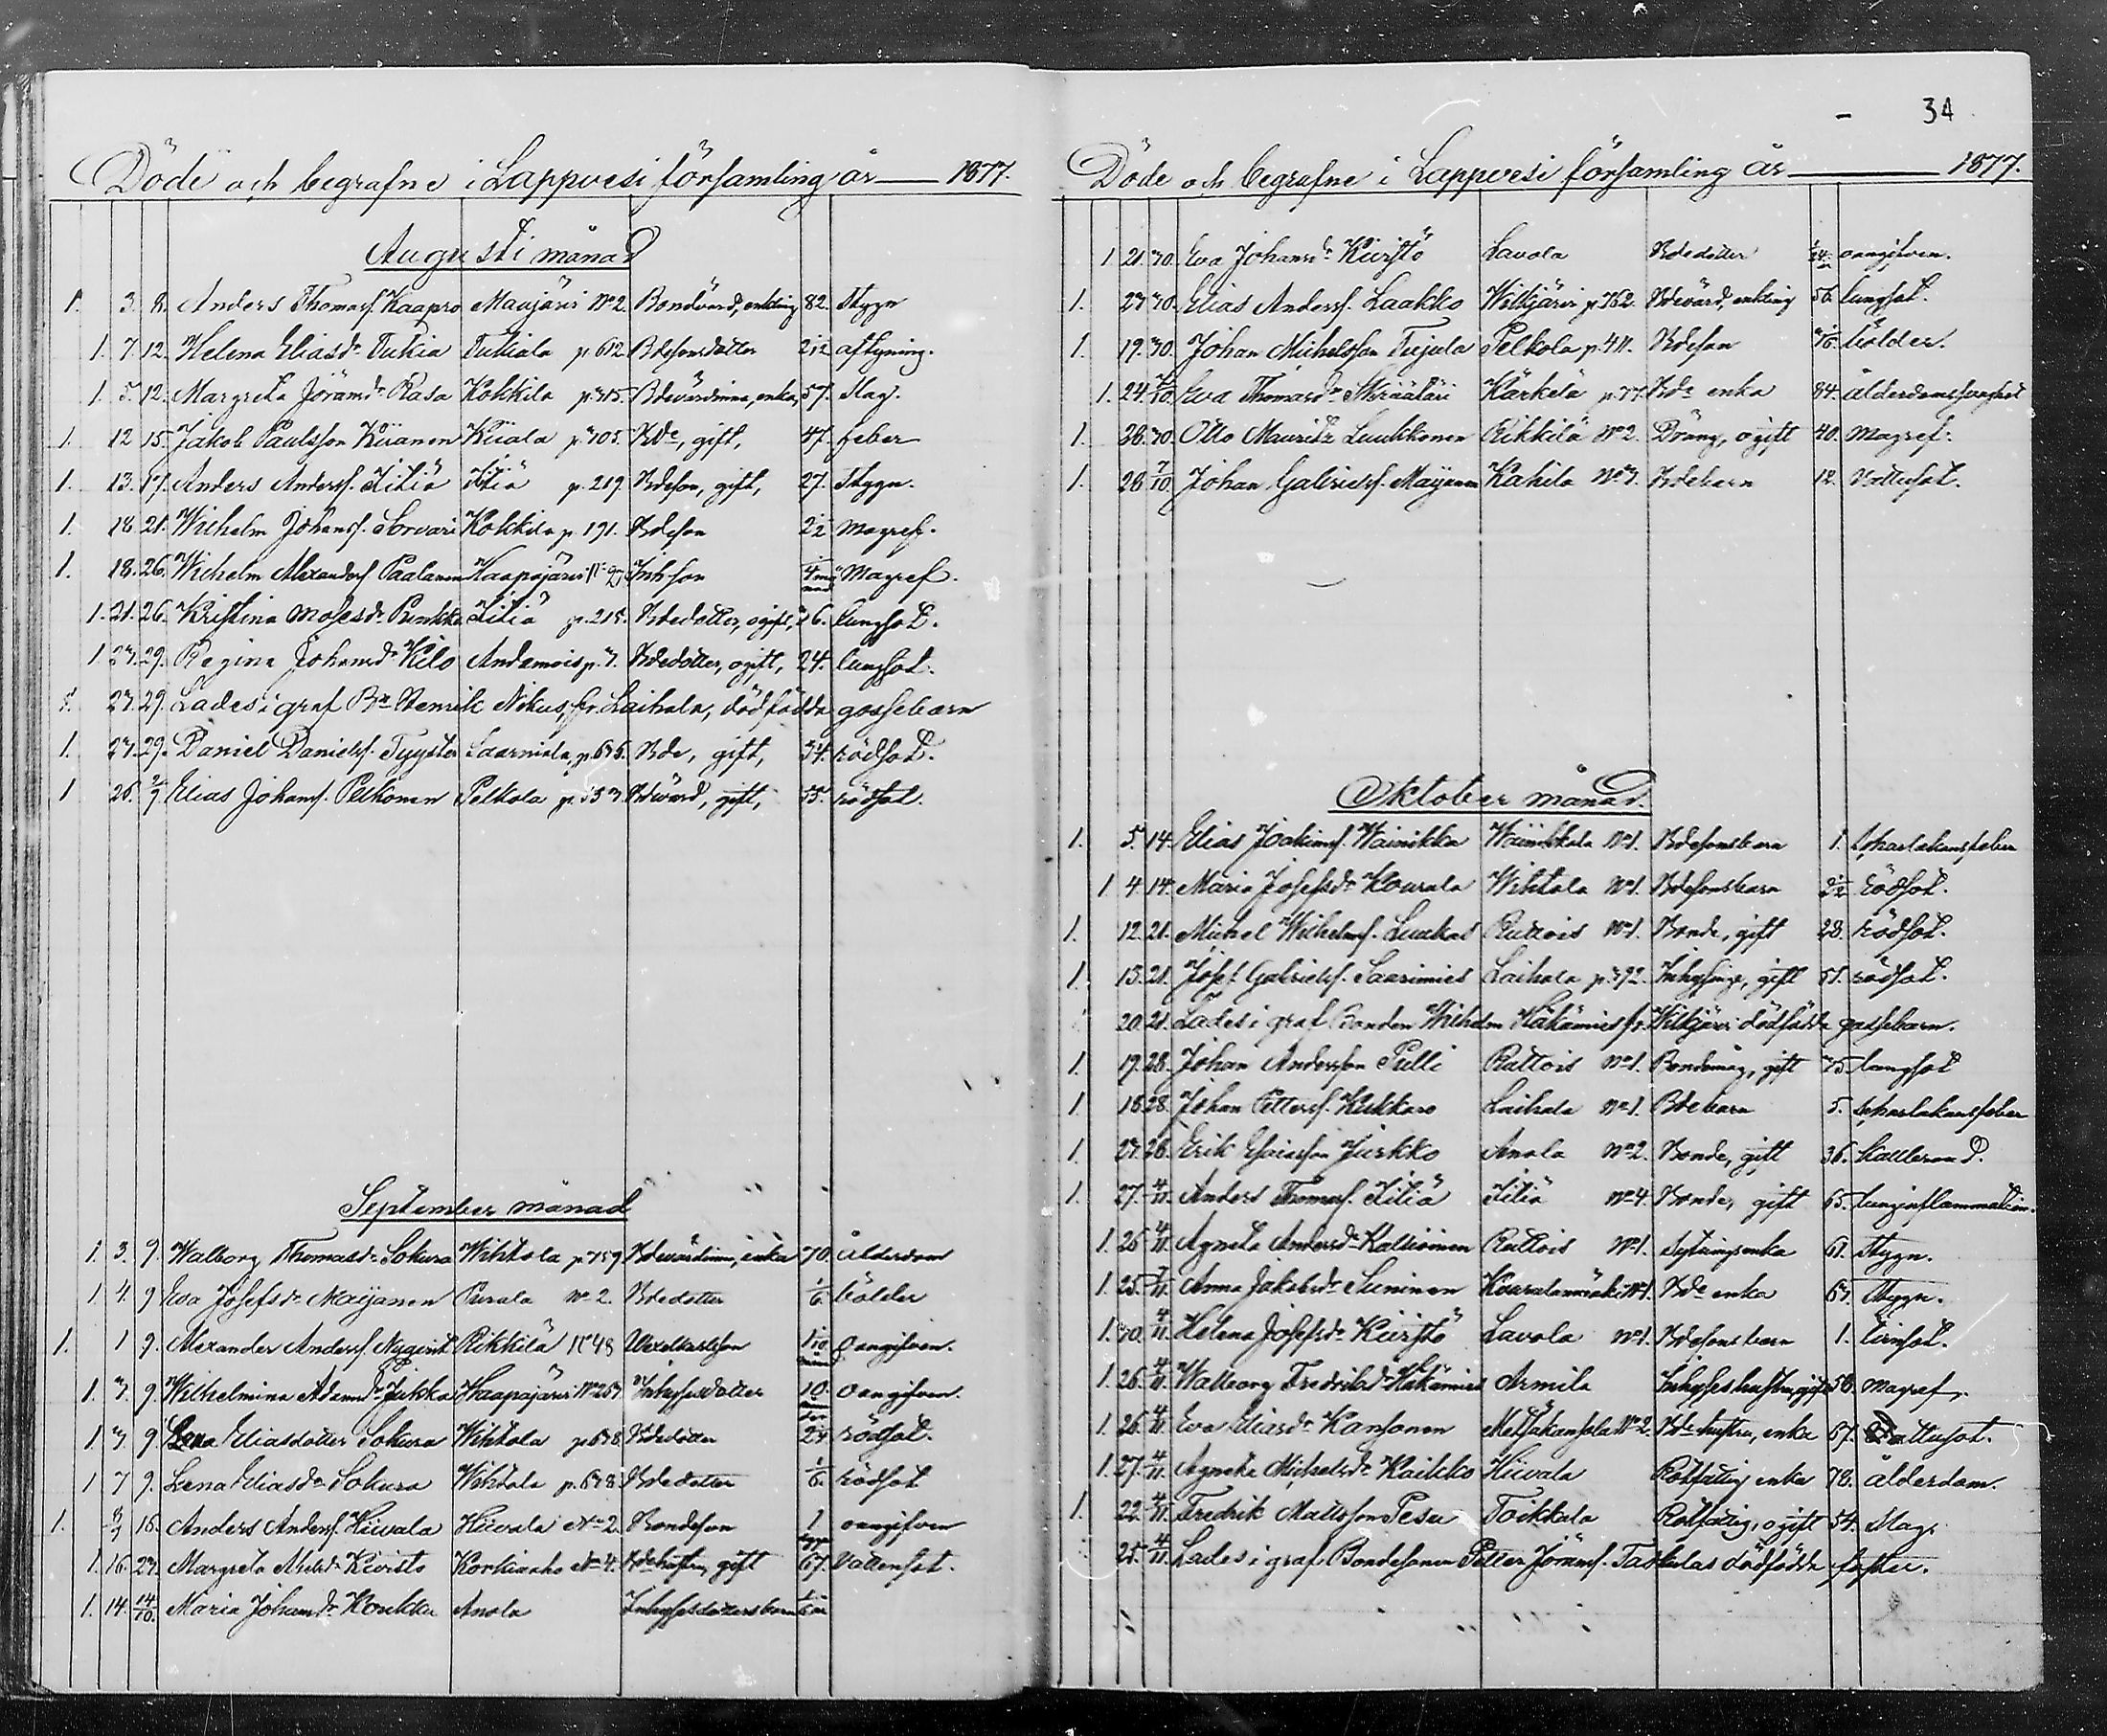 Döde och begrafne i Lappvesi församling år 1877.
Augusti månad
1. 3. 8. Anders Thomasf. Kaapro Maujärvi No 2. Bondvärd, enkling 82. Stygn
1. 7. 12. Helena Eliasdr Tukia Tukiala p. 612 Bdesonsdotter 2 1/2 aftyning.
1. 5. 12. Margreta Jöramdr Rasa Kokkila p. 315. Bdevärdinna, enka, 57. Slag.
1. 12 15. Jakob Paulsson Kiianen Kiiala p. 305. Bde, gift, 47. feber
1. 13. 17. Anders Andersf. Iitiä Iitiä p. 219. Bdeson, gift, 27. Stygn.
1. 18 21. Wilhelm Johansf. Sorvari Kokkila p. 191. Bdeson 2 1/2 Magref.
1. 18. 26. Wilhelm Alexandersf. Paalanen Haapajärvi Inh. son 4 Magref.
1. 21. 26. Kristina Mosesdr Iitiä p. 215. Bdedotter, ogift, 6. lungsot.
1. 23. 29. Regina Johansdr Kilo p. 3. Bdedotter, ogift, 24. lungsot.
1. 23. 29. Lades i graf Bn Henrik Nikus, fr. Laihala, dödfödda gossebarn
1. 23. 29. Daniel Danielsf. Tyyster Saarniala, p. 636. Bde, gift, 34. rödsot.
1 26. 2/9 Elias Johansf. Pelkonen Pelkola p. Bdvärd, gift, 55. rödsot.
September månad
1. 3. 9. Walborg Thomasdr Sokura Wihtola p. 759 Bdevärdinna, enka 70. ålderdom
1. 4. 9 Eva Josefsdr Maijanen Purala No 2. Bdedotter 1/6 bölder
1. 1 9. Alexander Andersf. Rikkilä No 48 1/10 oangifven.
1. 3. 9. Wilhelmina Adamdr Jukka Haapajärvi No 257. Inhysesdotter 10. oangifven.
1. 3. 9 Lena Eliasdotter Sokura Wihtola p. 678 Bdedotter rödsot.
1 7 9. Lena Eliasdr Sokura Wihtola p. 678 Bdedotter 1/6. rödsot
1. 8/9 16. Anders Andersf. Hiivala Hiivala No 2. Bondeson 1 oangifven
1. 16. 23. Margreta Kiiristo Korkiaaho No 4. Bdehustru, gift 67. Vattensot.
1. 14. 14/10. Maria Johansdr Konkka Anola Inhysesdottersbarn
34
Döde och begrafne i Lappvesi församling år 1877.
1 21. 30. Eva Johansdr Kiiristö Lavola Bdedotter oangifven.
1. 23 30. Elias Andersf. Laakko Wilkjärvi p. 762. Bdevärd, enkling 56. lungsot.
1. 19. 30. Johan Michelsson Tujula Pelkola p. 411. Bdeson bölder.
1. 24. 7/10. Eva Thomasdr Skräätäri Kärkelä p. 77. Bde enka 84. ålderdomssvaghet
1. 28. 30. Otto Mauritz Luukkonen Rikkilä No 2. Dräng, ogift 40. Magref.
1. 28 7/10. Johan Gabrielsf. Maijanen Kahila No 3. Bdebarn 12. Vattusot.
Oktober månad.
1. 5. 14. Elias Joakimsf. Wainikka Wainikkala No 1. Bdesonsbarn 1. Scharlakansfeber
1 4. 14. Maria Josefsdr Kourala Wihtola No 1. Bdesonsbarn 2 1/2 rödsot.
1. 12. 21. Michel Wilhelmsf. Luukas Ruttois No 1. Bonde, gift 28. rödsot.
1. 13. 21. Josef Gabrielsf. Saarimies Laihala p. 392. Inhysing, gift 51. rödsot.
20. 21. Lades i graf Bonden Wilhelm Häkämies fr. Wilkjärvi dödfödda gossebarn.
1. 17. 28. Johan Andersson Pulli Rattois No 1. Bondemåg, gift 75. lungsot
1. 18 28. Johan Pettersf. Kukkaro Laihala No 1. Bdebarn 5. Scharlakansfeber
1. 23. 28. Erik Esaiasson Jurkko Anola No 2. Bonde, gift 36. kallbrand.
1. 27. 4/11. Anders Thomasf. Iitiä Iitiä No 4. Bonde, gift 65. lunginflammation.
1. 26 4/11. Agneta Andersdr Kaltiainen Ruttois No 1. Sytningsenka 61. Stygn.
1. 25. 4/11. Anna Jakobsdr Suninen No 1. Bde enka 63. Stygn.
1. 30. 4/11. Helena Josefsdr Kiiristö Lavola No 1. Bdesonsbarn 1. tvinsot.
1. 26. 4/11. Walborg Fredriksdr Häkämies Armila Inhyseshustru, gift 58. magref.
1. 26. 4/11. Eva Eliasdr Kansonen Metsäkansola No 2. Bdehustru, enka 67. Vattusot.
1. 27. 4/11. Agneta Michelsdr Kaikko Hiivala Rotfattig enka 78. ålderdom.
1. 22. 4/11. Fredrik Mattsson Pesu Toikkala Rotfattig, ogift 54. Slag.
25. 4/11. Lades i graf Bondesonen Petter Jöramsf. Taskulas dödfödda foster.